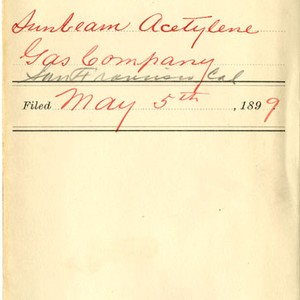 Sunbeam Acetylene
Gas Company
San Francisco Cal
Filed May 5th, 1899